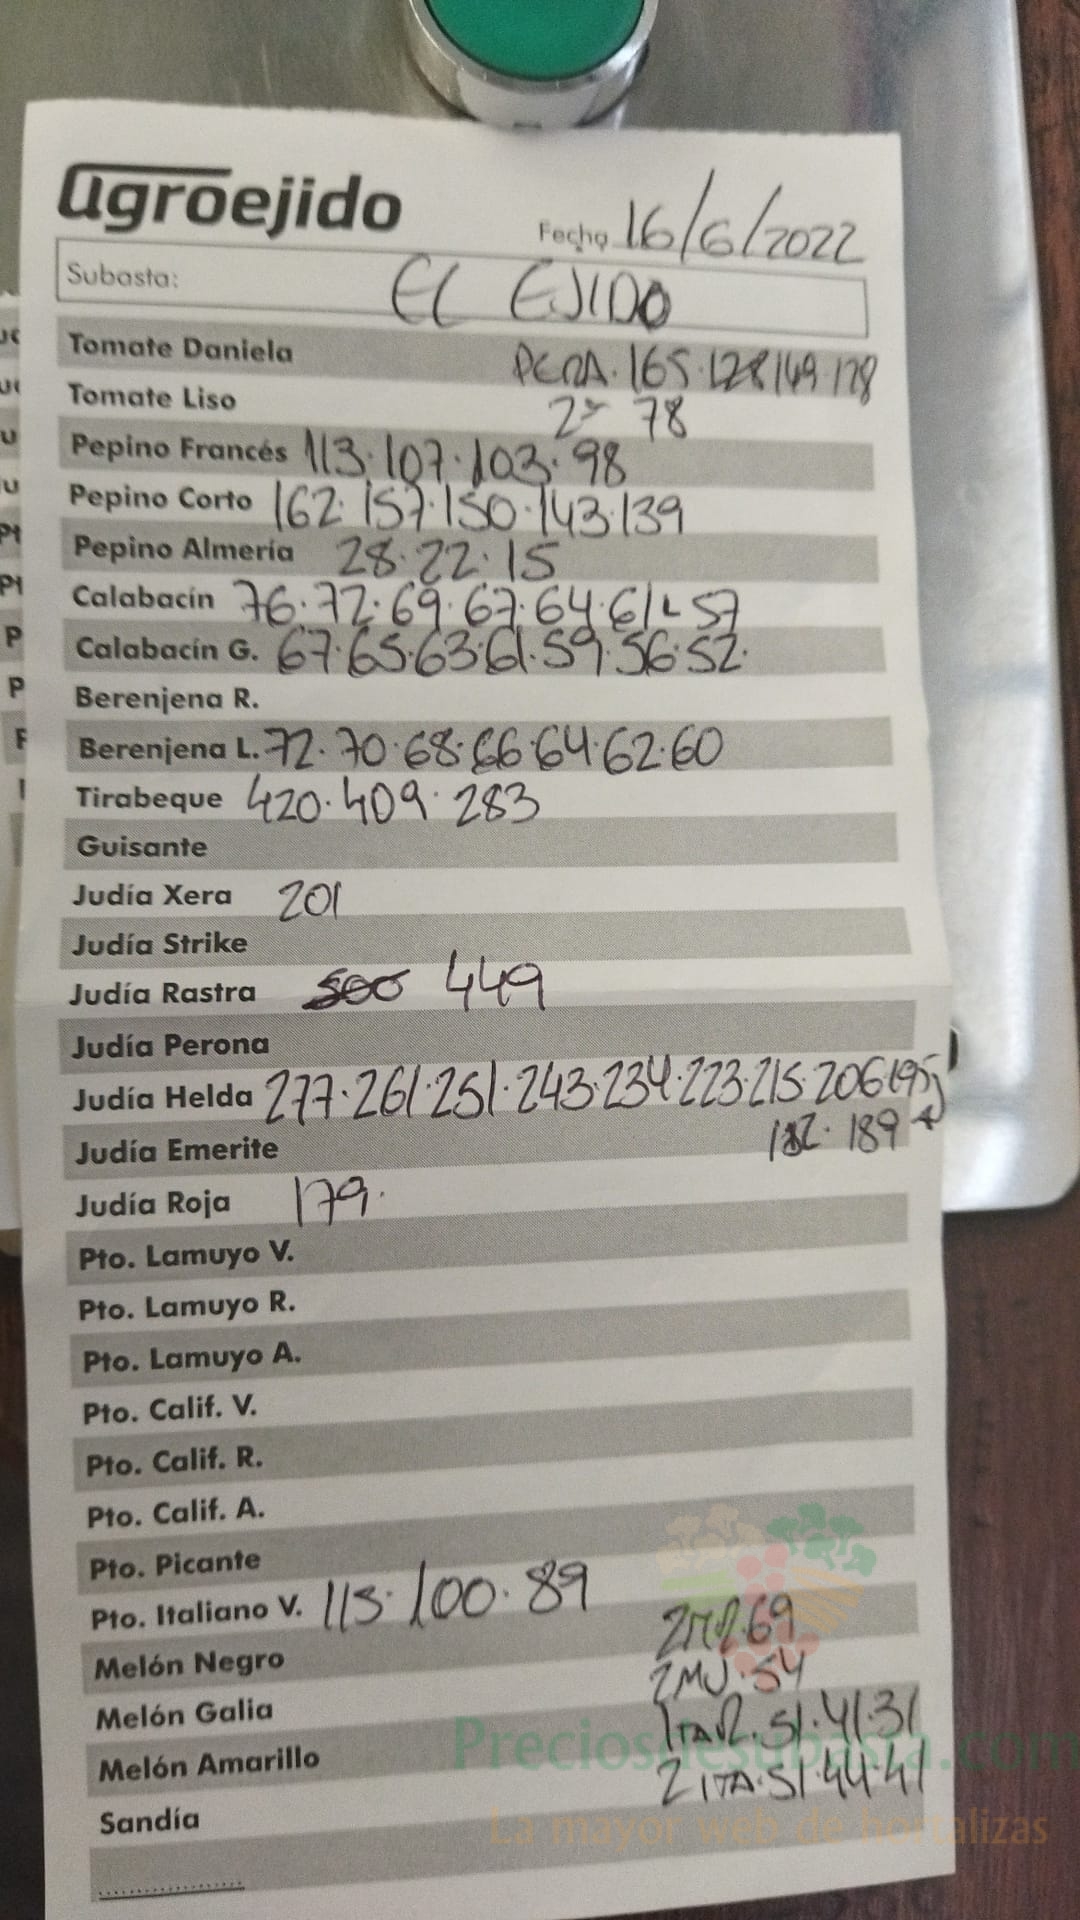 agroejido
Fecha 16/6/2022
Subasta: EL EJIDO
Tomate Daniela PERA. 165.128 149.128
Tomate Liso 2ª 78
Pepino Francés 113.107.103.98
Pepino Corto 162.157.150.143.139
Pepino Almería 28.22.15
Calabacín 76.72.69.67.64.61 L 57
Calabacín G. 67.65.63.61.59.56.52.
Berenjena R.
Berenjena L. 72.70.68.66.64.62.60
Tirabeque 420.409.283
Guisante
Judía Xera 201
Judía Strike
Judía Rastra 449
Judía Perona
Judía Helda 277.261.251.243.234.223.215.206.195
189
Judía Emerite
Judía Roja 179.
Pto. Lamuyo V.
Pto. Lamuyo R.
Pto. Lamuyo A.
Pto. Calif. V.
Pto. Calif. R.
Pto. Calif. A.
Pto. Picante
Pto. Italiano V. 113.100.89
Melón Negro 69
2MV.54
Melón Galia 51.41.31
Melón Amarillo 2 ITA.51.44.41
Sandía
Preciosdesubasta.com
La mayor web de hortalizas